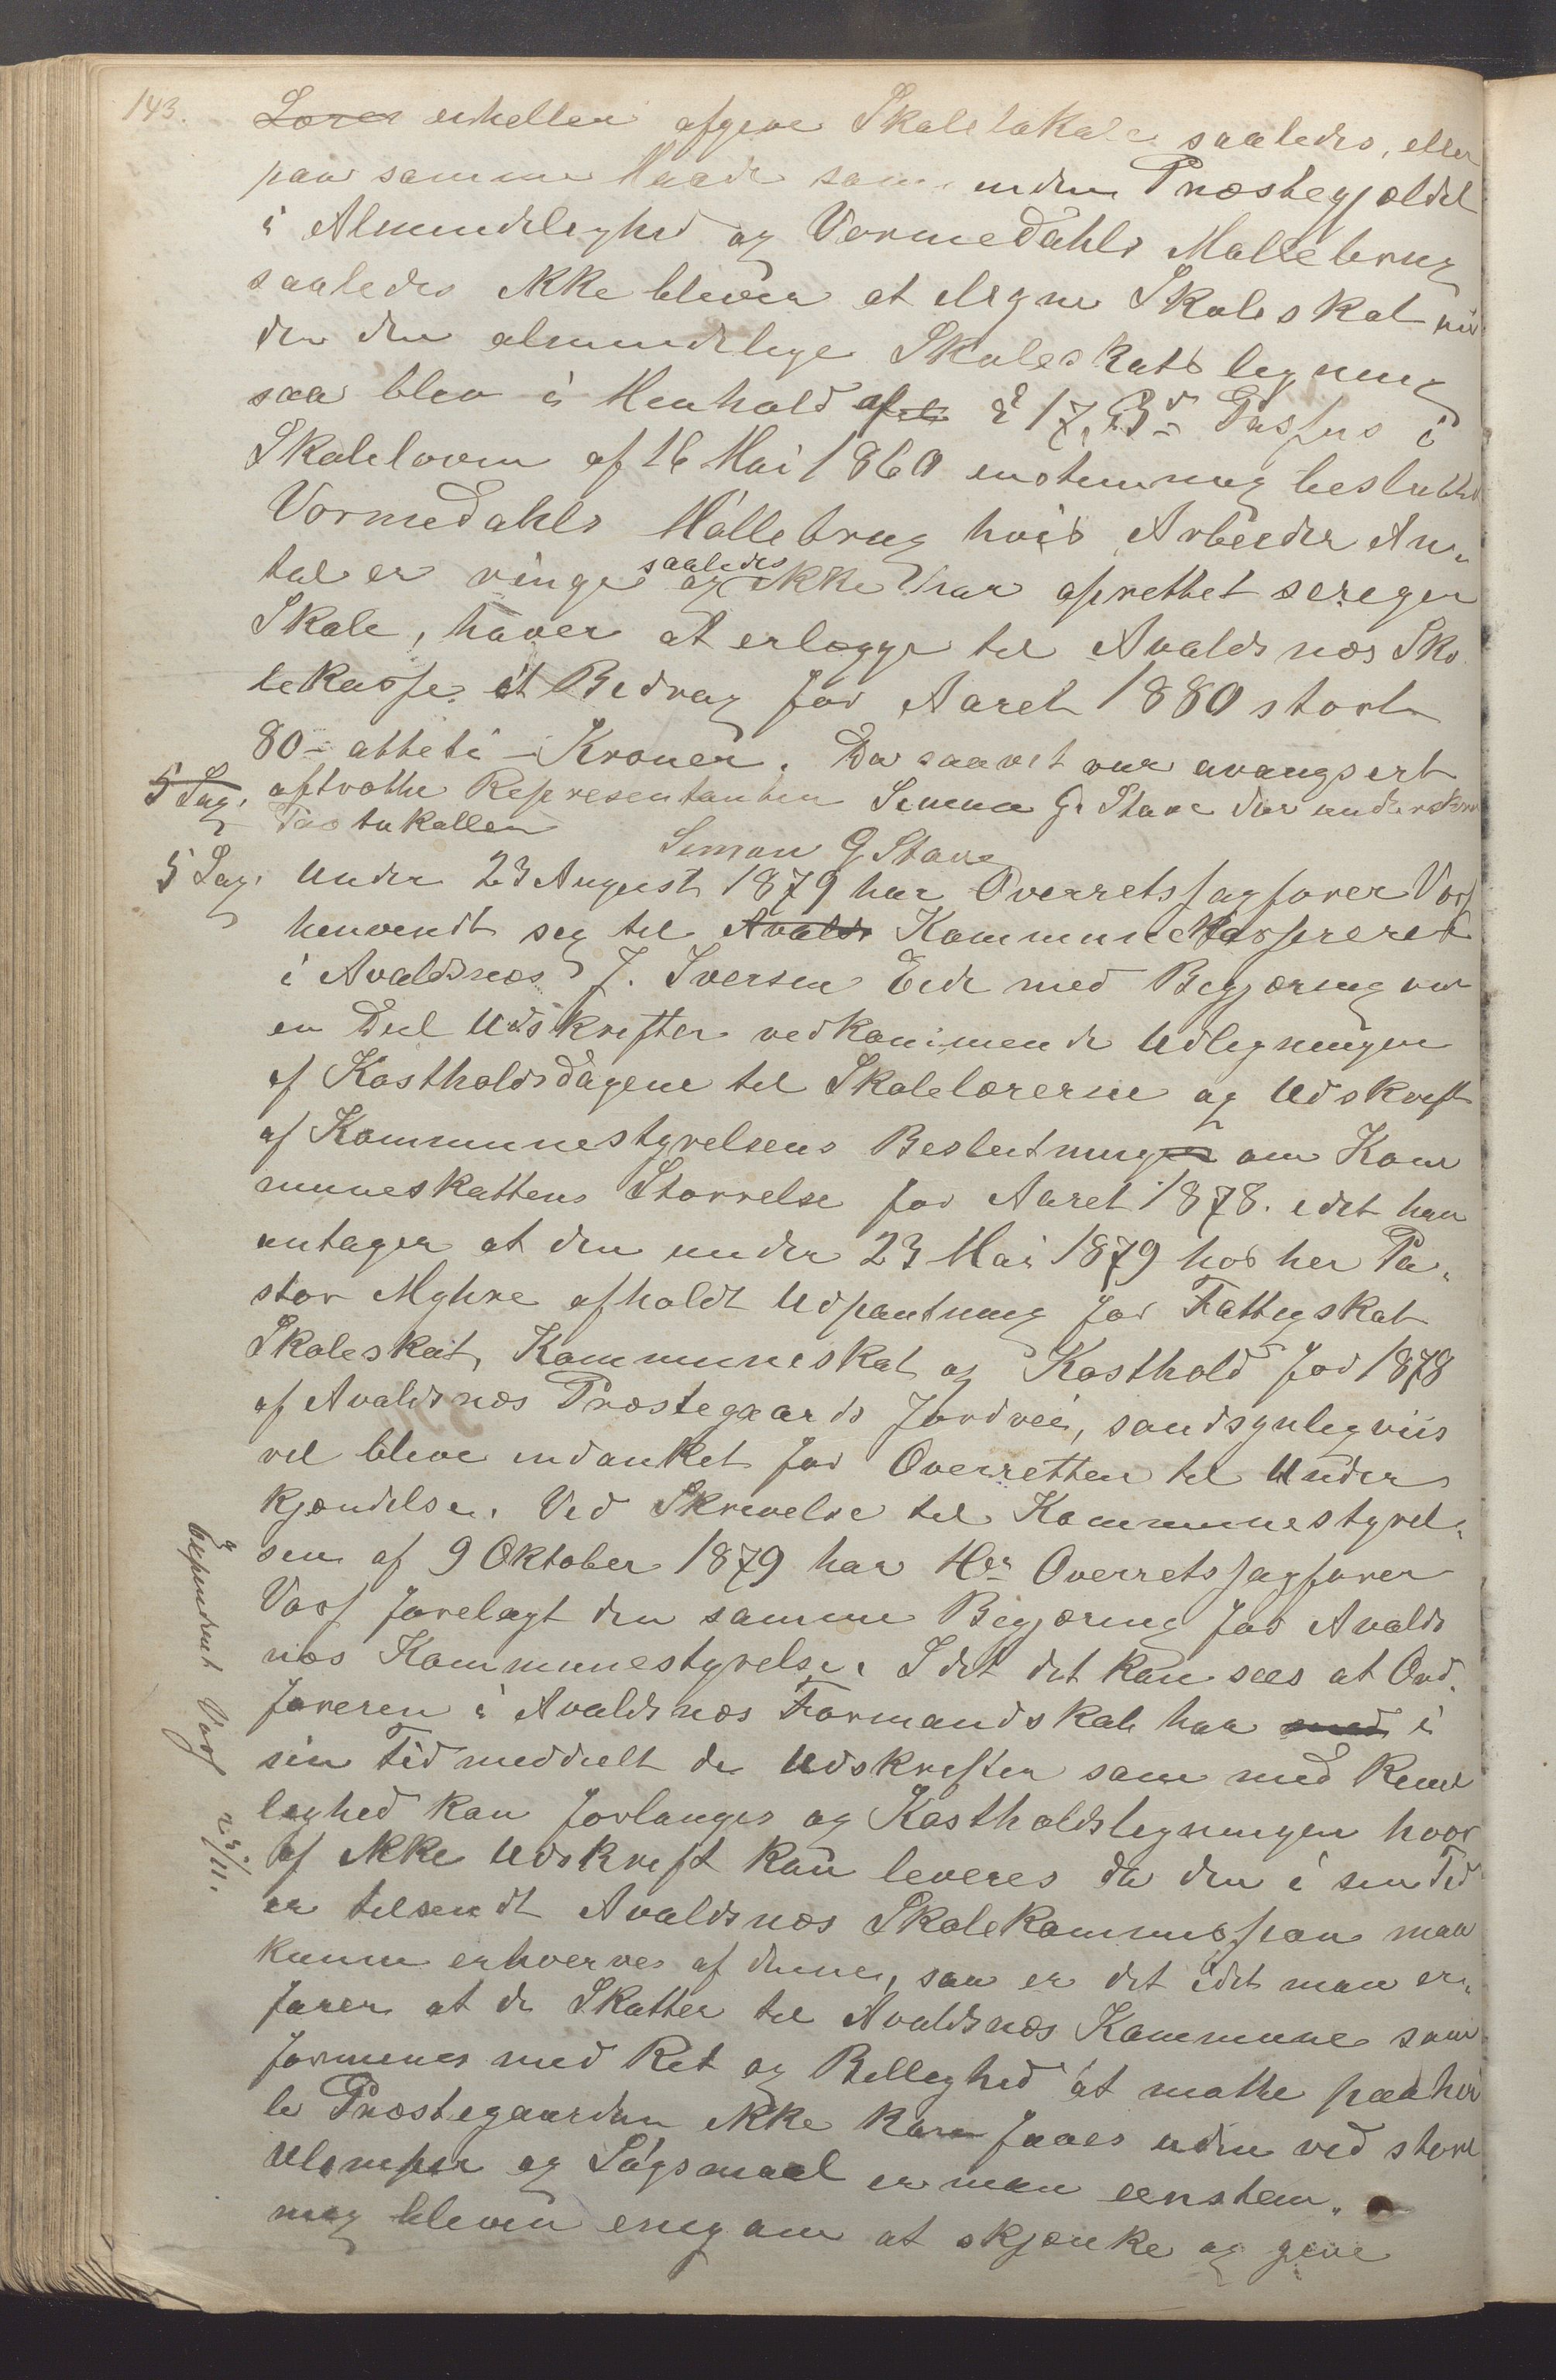 143.
Lærer enheller afgive Skolelokale saaledes, eller
paa samme Maade som inden Præstegjeldet
i Almindelighed og Vormedahls Møllebrug
saaledes ikke bleven at eligne Skoleskat un
der den almindelige Skoleskats ligning
saa blev i Henhold § 17, 3die Passus i
Skoleloven af 16 Mai 1860 enstemmig besluttet
Vormedahls Møllebrug hvis Arbeider An-
tal er ringe og saaledes ikke har oprettet seregen
Skole, haver at erlægge til Avaldsnes Sko
lekasse et Bidrag for Aaret 1880 stort
80 - otteti - Kroner. Da saavit var avangsert
5 Sag. aftrotte Representanten Simon G. Stave der underskrev
Protokollen
Simon G Stave
5 Sag. Under 23 August 1879 har Overretssagfører Vos
henvendt sig til Avalds Kommunekasserer
i Avaldsnes J. Iversen Eide med Begjæring om
en Deel Udskrifter vedkommende Udligningen
af Kostholdsdagene til Skolelærerne og Udskrift
af Kommunestyrelsens Beslutninger om Kom
muneskattens Størrelse for Aaret 1878. idet han
antager at den under 23 Mai 1879 hos her Pa-
stor Myhre afholdt Udpantning for Fattigskat
Skoleskat, Kommuneskat og Kosthold for 1878
af Avaldsnes Præstegaards Jordvei, sandsynligviis
vil blive indanket for Overretten til Under
kjendelse. Ved Skrivelse til Kommunestyrel-
sen af 9 Oktober 1879 har Hrr Overretssagfører
Vos forelagt den samme Begjæring for Avalds
nes Kommunestyrelse. I det det kan sees at Ord
føreren i Avaldsnes Formandskab har med i
sin Tid meddelt de Udskrifter som med Rime
lighed kan forlanges og Kostholdsligningen hvor
af ikke Udskrift kan leveres da den i sin Tid
er tilsendt Avaldsnes Skolekommission maa
kunne erhverves af denne, saa er det idet man er-
farer at de Skatter til Avaldsnes Kommune som
formenes med Ret og Billighed at maatte paahvi
le Præstegaarden ikke kan faaes uden ved store
Ulemper og Søgsmaal er man eenstem-
mig bleven enig om at skjænke og give
Vos 23/11.